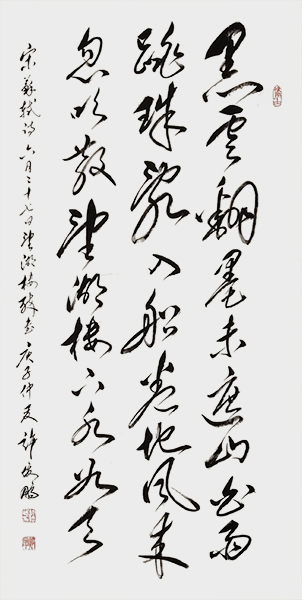 黑雲翻墨未遮山白雨
跳珠亂入船卷地風來
忽吹散望湖樓下水如天
宋蘇軾詩六月二十七日望湖樓醉書庚子仲夏許